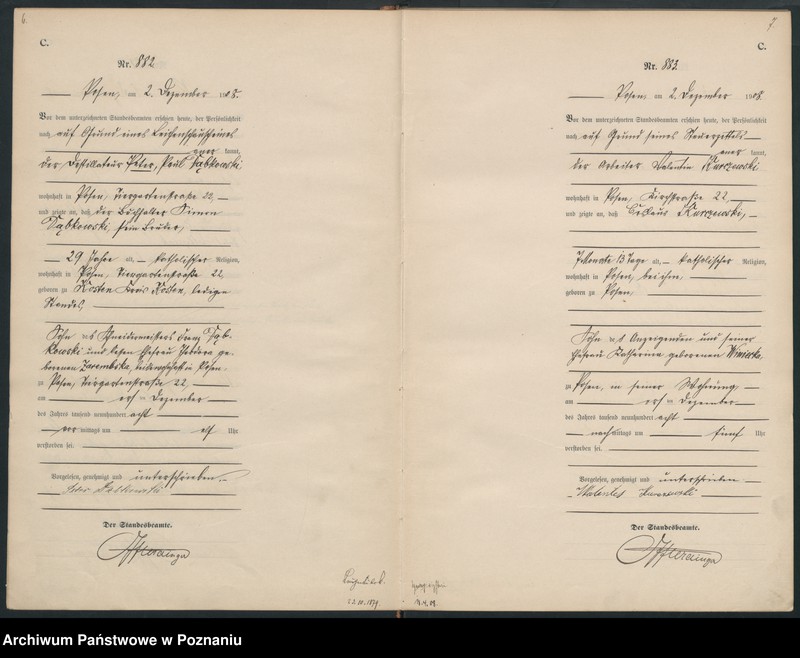 6.
C.
Nr. 882
Posen, am 2. Dezember 1908.
Vor dem unterzeichneten Standesbeamten erschien heute, der Persönlichkeit
nach, auf Grund eines Leichenschauscheines
aner kannt,
der Destillateur Peter, Paul Dąbkowski
wohnhaft in Posen, Tiergartenstraße 22,
und zeigte an, daß der Buchhalter Simon
Dąbkowski, sein Bruder,
29 Jahre alt, katholischer Religion,
wohnhaft in Posen, Tiergartenstraße 22
geboren zu Kosten Kreis Kosten, ledigen
Standes,
Sohn des Schneidermeisters Franz Dąb-
kowski und dessen Ehefrau Theodora ge-
borenen Zarembska, in Posen,
zu Posen, Tiergartenstraße 22
am ersten Dezember
des Jahres tausend neunhundert acht
vor mittags um elf Uhr
verstorben sei.
Vorgelesen, genehmigt und unterschrieben.
Peter Dąbkowski
Der Standesbeamte.
22.10.1879.
7.
C.
Nr. 883
Posen, am 2. Dezember 1908
Vor dem unterzeichneten Standesbeamten erschien heute, der Persönlichkeit
nach, auf Grund seines Steuerzettels
aner kannt,
der Arbeiter Valentin Kurczewski
wohnhaft in Posen, Kirchstraße 22,
und zeigte an, daß Kurczewski,
7 Monate 13 Tage alt, katholischer Religion,
wohnhaft in Posen, bei ihm,
geboren zu Posen,
Sohn des Anzeigenden und seiner
Ehefrau Katharina geborenen Winiecka,
zu Posen, in seiner Wohnung
am ersten Dezember
des Jahres tausend neunhundert acht
nachmittags um fünf Uhr
verstorben sei.
Vorgelesen, genehmigt und unterschrieben
Kurczewski
Der Standesbeamte.
Archiwum Państwowe w Poznaniu